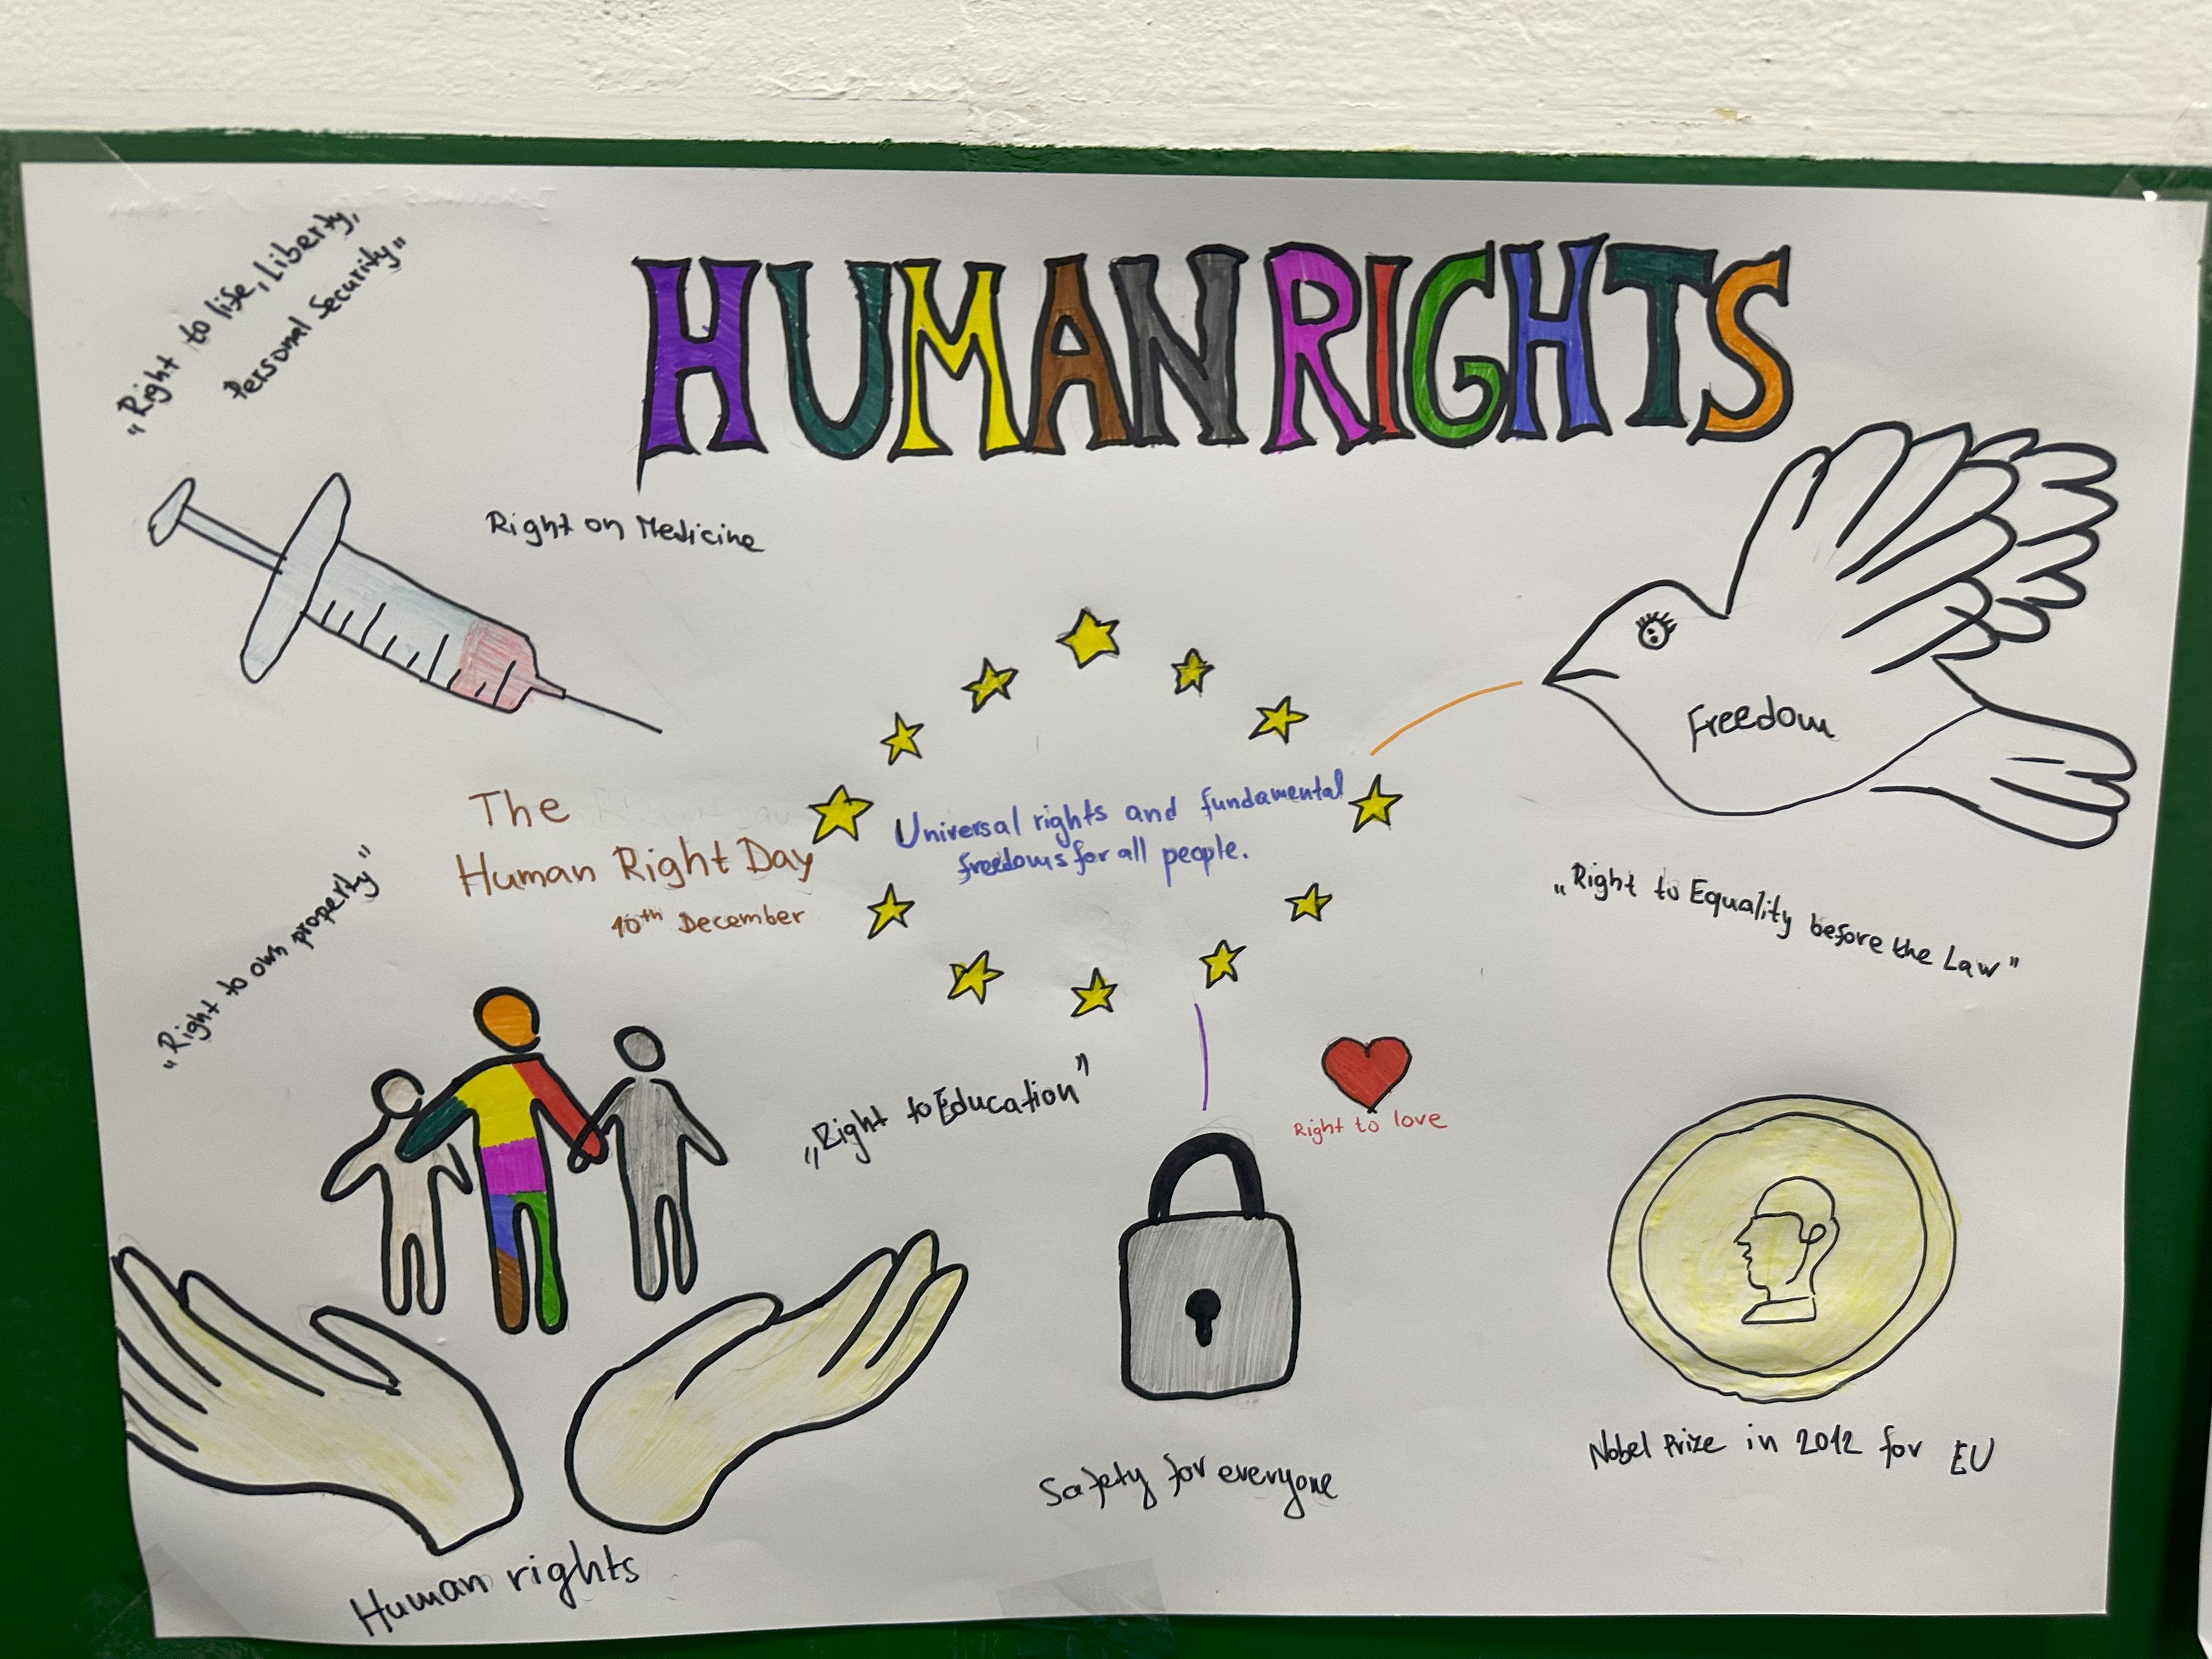 HUMAN RIGHTS
„Right to life, Liberty,
Personal Security"
Right on Medicine
Freedom
The
Human Right Day
10th December
Universal rights and fundamental
freedoms for all people.
„Right to Equality before the Law"
„Right to own property"
„Right to Education"
Right to love
Nobel Prize in 2012 for EU
Safety for everyone
Human rights